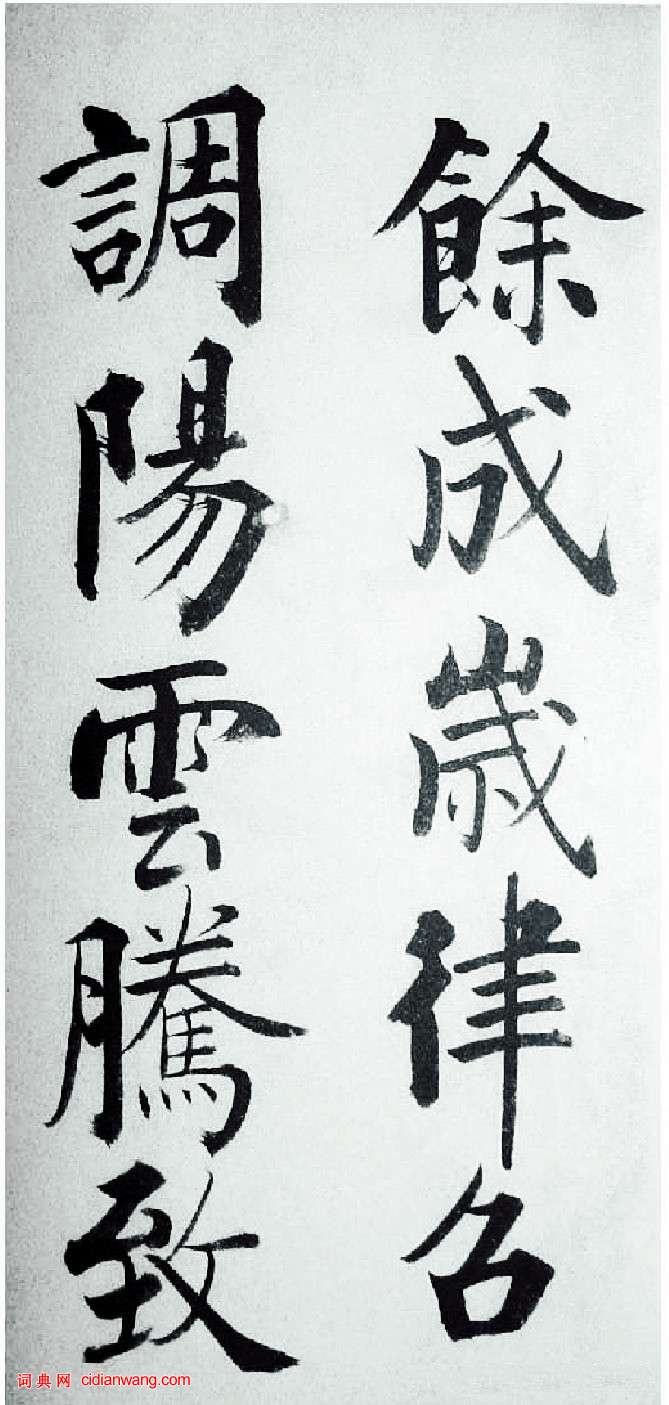 餘成嵗律召
調陽雲騰致
词典网 cidianwang.com